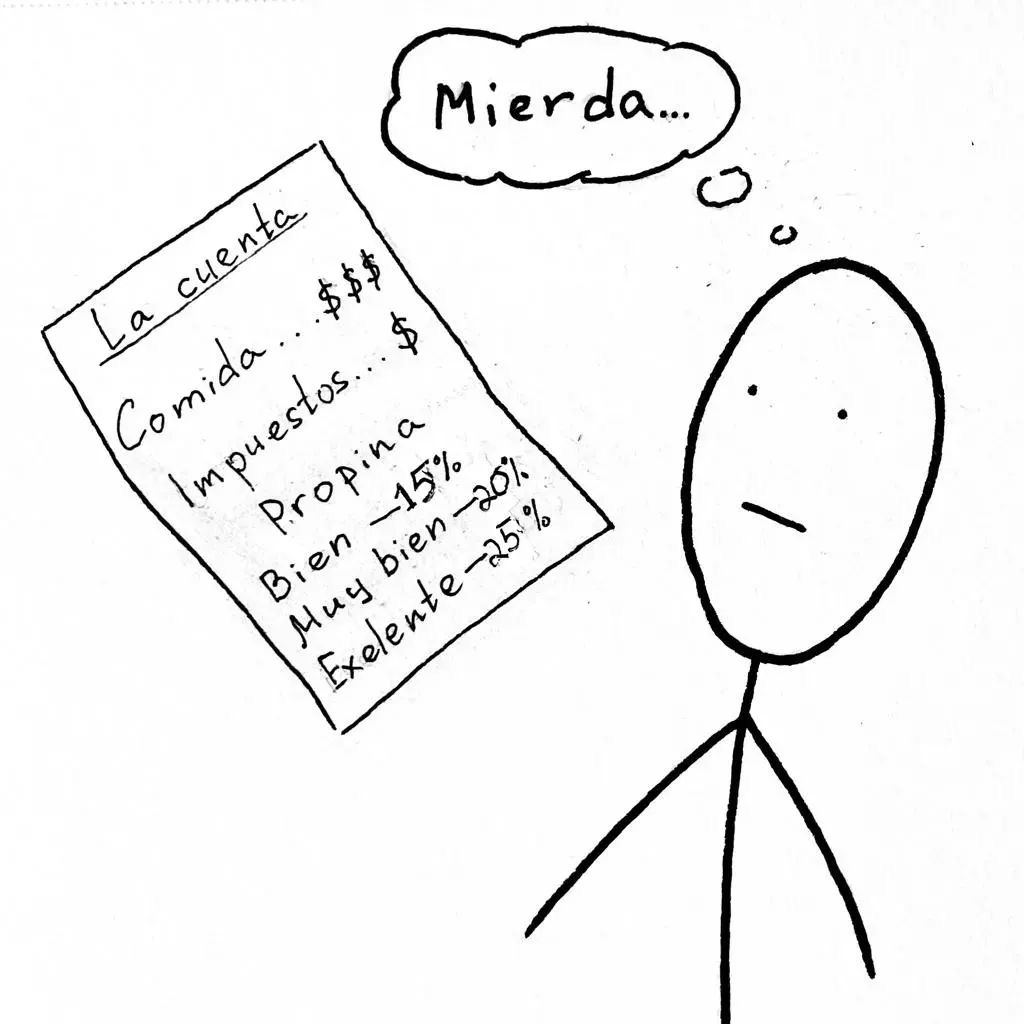 Mierda...
La cuenta
Comida...$$$
Impuestos...$
Propina
Bien —15%
Muy bien —20%
Exelente —25%